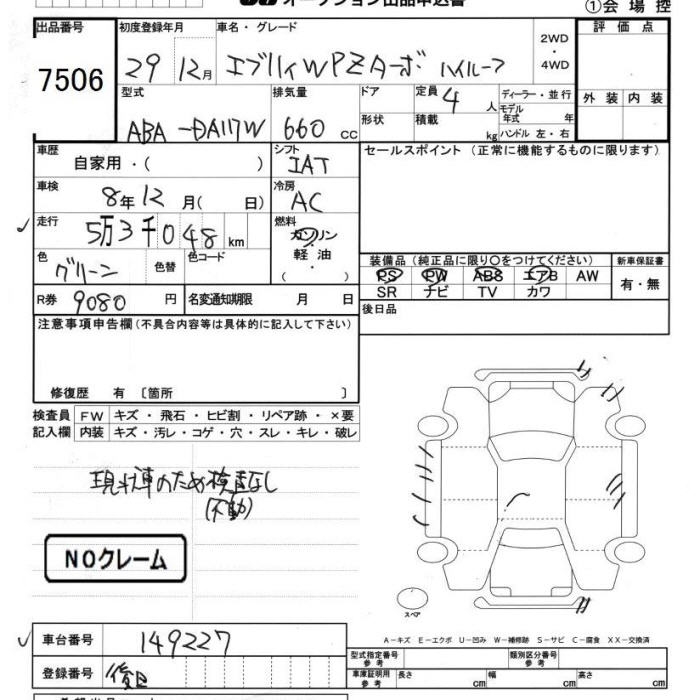 オークション出品申込書
①会場控
出品番号 初度登録年月 車名・グレード 評価点
7506 29 12月 エブリィW PZターボ ハイルーフ 2WD・4WD
外装 内装
型式 排気量 ドア 定員 4人 ディーラー・並行
モデル年式 年
ABA-DA17W 660cc 形状 積載 kg ハンドル 左・右
車歴 自家用・( ) シフト IAT セールスポイント(正常に機能するものに限ります)
車検 8年12月( 日) 冷房 AC
走行 5万3千048km 燃料 ガソリン・軽油・( )
色 グリーン 色替 色コード
装備品(純正品に限り○をつけてください) 新車保証書
PS PW ABS エアB AW 有・無
SR ナビ TV カワ
R券 9080円 名変通知期限 月 日 後日品
注意事項申告欄(不具合内容等は具体的に記入して下さい)
修復歴 有〔箇所 〕
検査員記入欄 FW キズ・飛石・ヒビ割・リペア跡・×要
内装 キズ・汚レ・コゲ・穴・スレ・キレ・破レ
現状車のため検査なし
(不動)
NOクレーム
スペア
A-キズ E-エクボ U-凹み W-補修跡 S-サビ C-腐食 XX-交換済
車台番号 149227
型式指定番号 参考 類別区分番号 参考
登録番号 後日
車庫証明用 参考 長さ cm 幅 cm 高さ cm